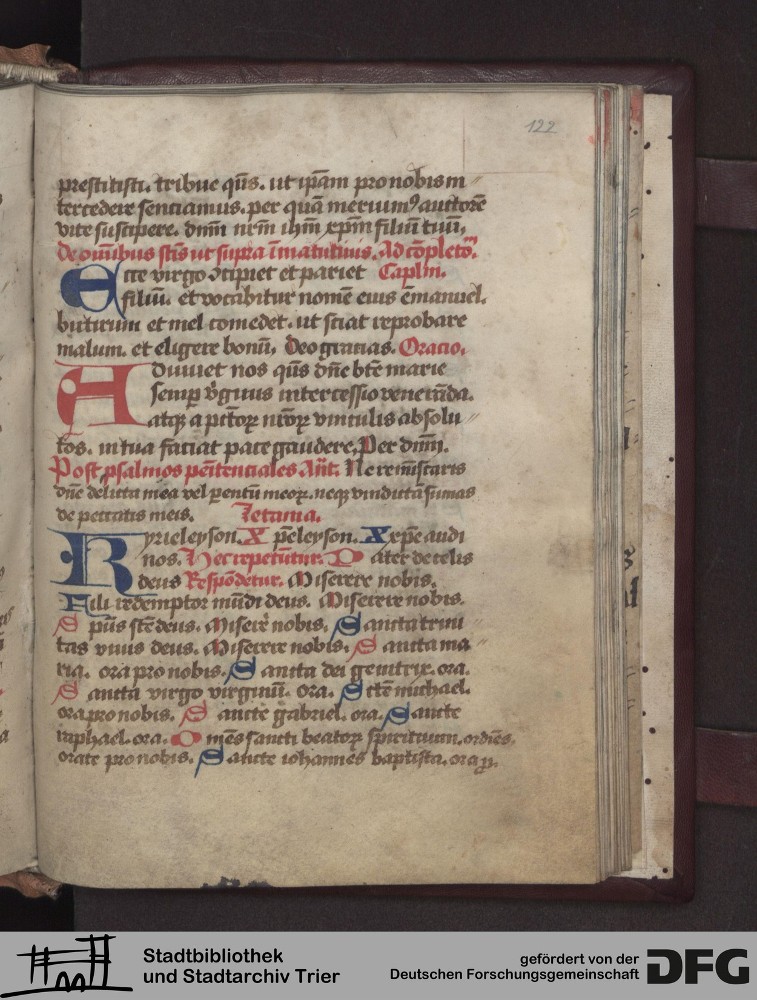 122
prestitisti. tribue q̄s. ut ip̄am pro nobis in〃
tercedere sentiamus. per quā meruim⁹ auctorē
vite suscipere. dn̄m nr̄m ih̄m xp̄m filiū tuū.
De om̄ibus sc̄is ut supra ī matutinis. Ad cōpletō.
Ecce virgo ↄcipiet et pariet Capl̄m.
filiū. et vocabitur nomē eius ēmanuel.
buturum et mel comedet. ut sciat reprobare
malum. et eligere bonū. Deo gracias. Oracio.
Adiuuet nos q̄s dn̄e bt̄e marie
semp̄ v̄ginis intercessio venerāda.
atqꝫ a pctōꝝ nr̄oꝝ vinculis absolu〃
tos. in tua faciat pace gaudere. Per dn̄m.
Post psalmos pēitenciales An̄t. Ne reminīscaris
dn̄e delicta mea vel parentū meoꝝ. neqꝫ vindictā sumas
de peccatis meis. Letania.
Kyrieleyson. Xp̄eleyson. Xrp̄e audi
nos. Hec repetūtur. Pater de celis
deus Respōdetur. Miserere nobis.
Fili redemptor mūdi deus. Miserere nobis.
Sp̄us sc̄e deus. Miserē nobis. Sancta trini〃
tas vnus deus. Miserere nobis. Sancta ma〃
ria. ora pro nobis. Sancta dei genitrix. ora.
Sancta virgo virginū. ora. Sctē michael.
ora pro nobis. Sancte gabriel. ora. Sancte
raphael. ora. Omēs sancti beatoꝝ spirituum. ordiēs.
orate pro nobis. Sancte iohannes baptista. ora p.
Stadtbibliothek
und Stadtarchiv Trier
gefördert von der
Deutschen Forschungsgemeinschaft
DFG